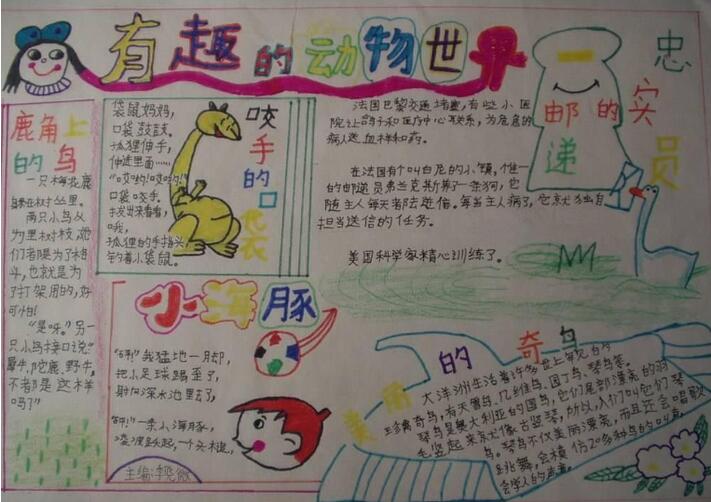 有趣的动物世界
鹿角上
的鸟
一只梅花鹿
躲在树丛里。
两只小鸟认
为里树枝,她
们者隄为了格
斗,也就是为
了打架用的,好
可怕!
"是呀。"另一
只小鸟接口说:"
犀牛、陀鹿、野牛,
不都是这样
吗?"
咬手的口袋
袋鼠妈妈,
口袋鼓鼓。
狐狸伸手,
伸进里面……
"哎哟!哎哟!"
口袋咬手。
哦,
狐狸的手指头,
钓着小袋鼠。
忠实的邮递员
法国巴黎交通堵塞,有些小医
院让鸽子和医疗中心联系,为危急的
病人送血样和药。
在法国有个叫白尼的小镇,惟一
的邮递员弗兰克斯养了一条狗,也
随主人每天者陆送信。每当主人病了,它就独自
担当送信的任务。
美国科学家精心训练了。
小海豚
我猛地一脚,
把小足球踢歪了,
射向深水池里去了,
一条小海豚,
主编:李晓薇
美丽的奇鸟
大洋洲生活着许多世上罕见的
珍禽奇鸟,有天鹅鸟、几维鸟、园丁鸟、琴鸟等。
琴鸟是奥大利亚的国鸟,它们尾部漂亮的羽
毛竖起来就像古竖琴,所以人们叫它们琴
鸟。琴鸟不仅美丽漂亮,而且还会唱歌
跳舞,会模仿20多种鸟的叫声,
会学人的声音。